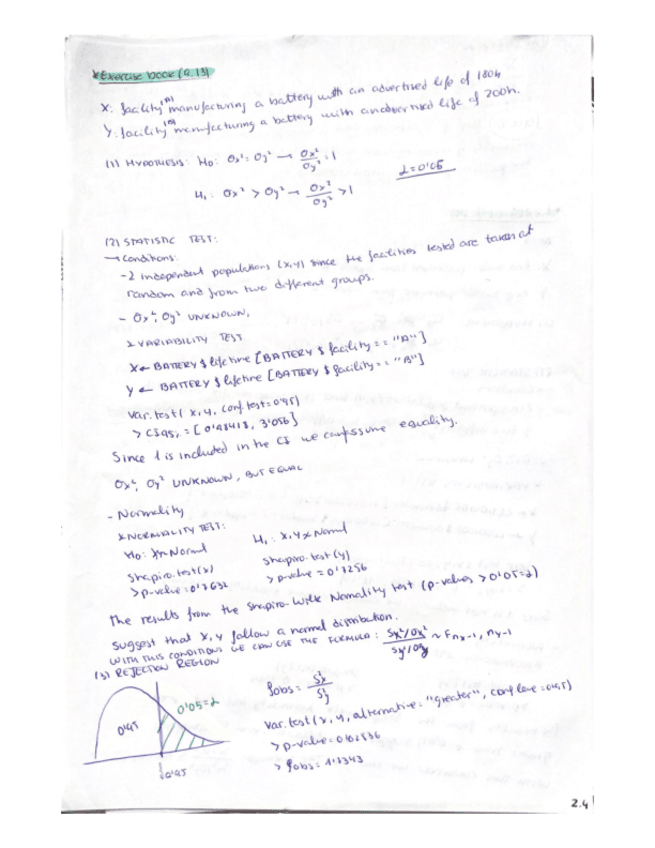 * Exercise book (9.13)
X: facility (A) manufacturing a battery with an advertised life of 180h
Y: facility (B) manufacturing a battery with an advertised life of 200h.
(1) HYPOTHESIS: H₀: σx² = σy² → σx²/σy² = 1
α = 0'05
H₁: σx² > σy² → σx²/σy² > 1
(2) STATISTIC TEST:
→ Conditions:
- 2 independent populations (x,y) since the facilities tested are taken at
random and from two different groups.
- σx², σy² UNKNOWN,
* VARIABILITY TEST
X ← BATTERY $ lifetime [BATTERY $ facility == "A"]
Y ← BATTERY $ lifetime [BATTERY $ facility == "B"]
var.test( x, y, conf.test = 0'95)
Since 1 is included in the CI we can assume equality.
σx², σy² UNKNOWN, BUT EQUAL
- Normality
* NORMALITY TEST:
H₀: Normal
H₁: X,Y Normal
Shapiro.test(x)
Shapiro.test(y)
> p-value = 0'7256
The results from the Shapiro-Wilk Normality test (p-values > 0'05 = α)
suggest that X, Y follow a normal distribution.
WITH THIS CONDITIONS WE CAN USE THE FORMULA: (Sx²/σx²)/(Sy²/σy²) ~ F nx-1, ny-1
(3) REJECTION REGION
fobs = Sx²/Sy²
0'05 = α
0'95
var.test(x, y, alternative = "greater", conf.leve = 0'95)
f0'95
2.4